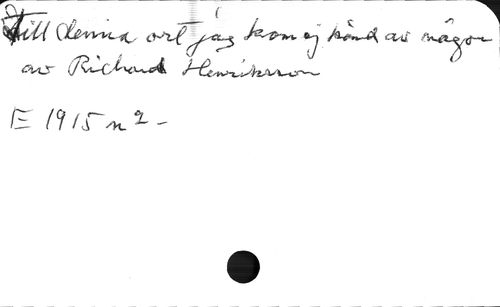 Till denna ort jag kom ej känd av någon
av Richard Henriksson
E 1915 n 2 -